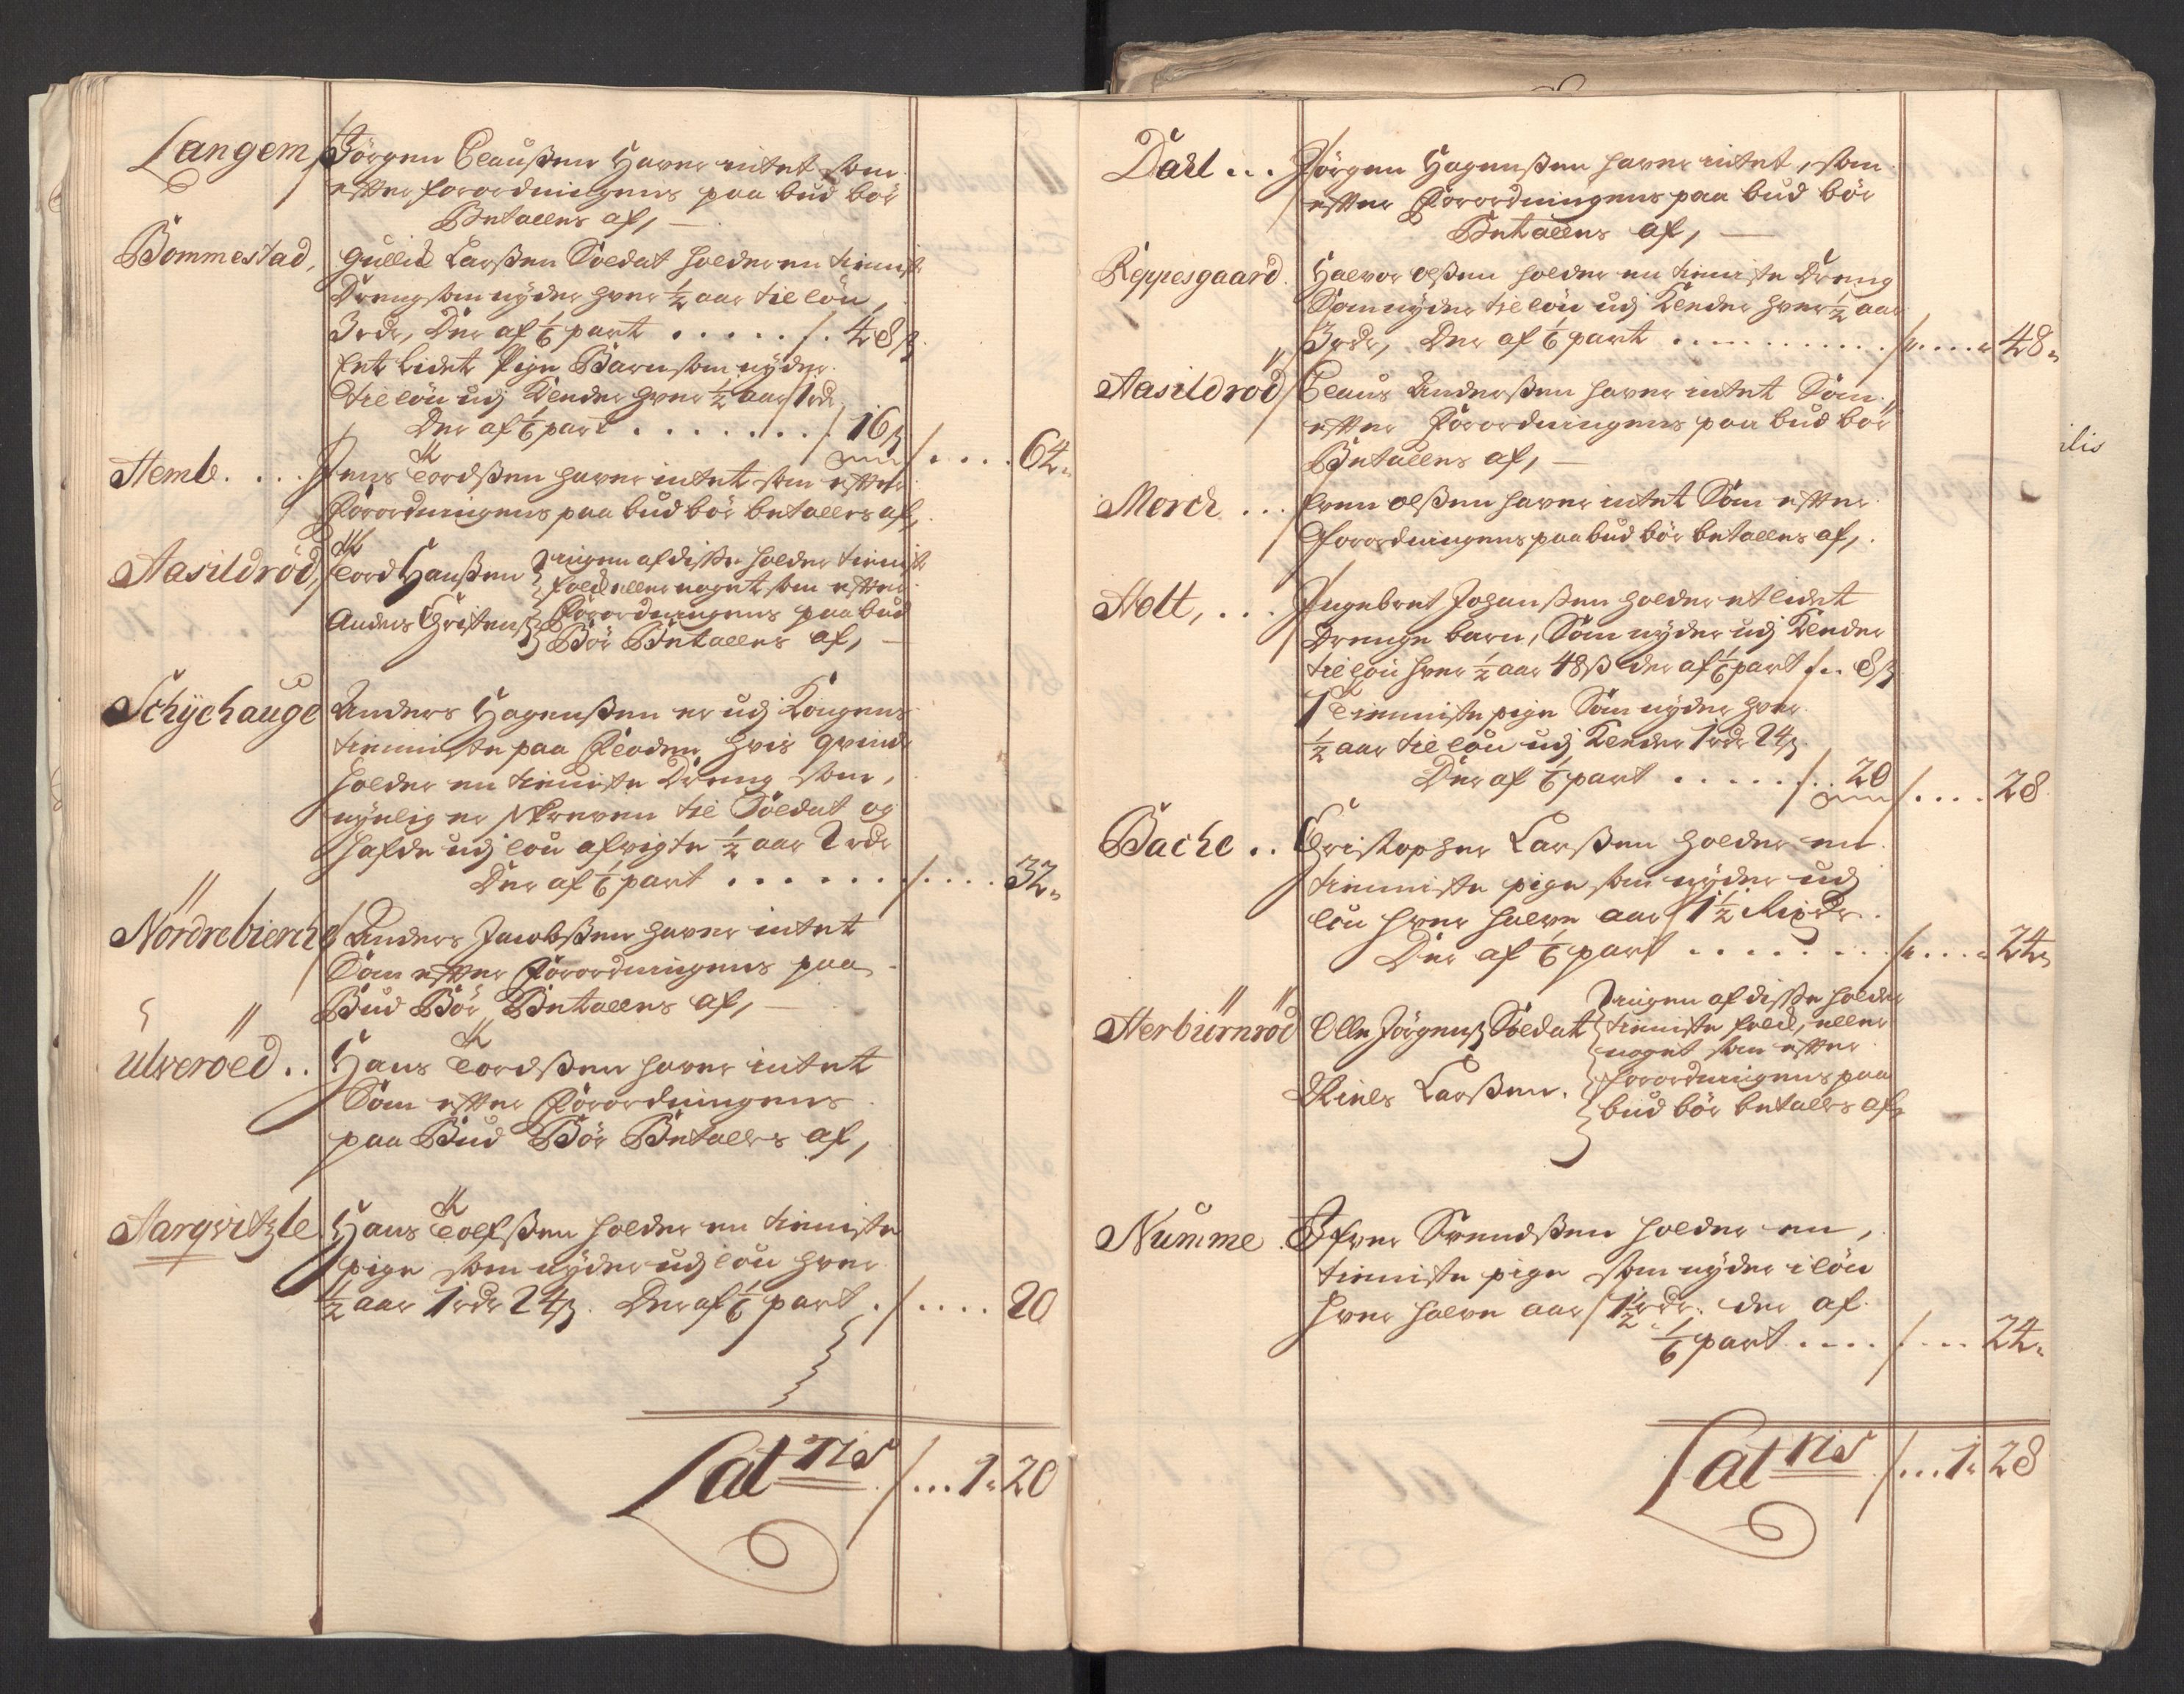 Langem Jörgen Claußen Haver intet som
efter forordningens paa bud bör
Betalles af,
Bommestad, Gullich Larßen Soldat holder en tieniste
Dreng som nyder hver ½ aar til lön
3 rdr, Der af 1/6 part . . . . . . 48 ß
Et lidet Pige Barn som nyder
til lön udj Klæder hver ½ aar 1 rdr
Der af 1/6 part . . . . . . . 16 ß
64
Hemb . . . . Jens Tordßen haver intet som efter
Forordningens paa bud bör betalles af,
Aasildröd, Tord Hanßen
Anders Christenß
Ingen af diße holder tieniste
folch eller noget som efter
Forordningens paa bud
Bör Betalles af,
Schijehauge Anders Hagenßen er udj Kongens
tieniste paa Floden, hvis qvinde
holder en tieniste Dreng som,
nylig er skreven til Soldat og
hafde udj lön afvigte ½ aar 2 rdr
Der af 1/6 part . . . . . . . 32
Nordrebierche Anders Jacobßen haver intet
Som efter Forordningens paa
Bud Bör Betalles af,
Ulveröed . . Hans Tordßen haver intet
Som efter Forordningens
paa Bud Bör Betalles af,
Aarqvitzle Hans Tolfßen holder en tieniste
pige som nyder udj lön hver
½ aar 1 rdr 24 ß. Der af 1/6 part . . . . . 20
Lat ris . . . 1 20
Dahl . . . Jörgen Hagenßen haver intet, som
efter Forordningens paa bud bör
Betalles af,
Reppesgaard. Halvor Olßen holder en tieniste Dreng
Som nyder til lön udj Klæder hver ½ aar
3 rdr, Der af 1/6 part . . . . . . . . . . . 48
Aasildröd Claus Anderßen haver intet Som,
efter Forordningens paa bud bör
Betalles af,
Morch . . . Even Olßen haver intet Som efter
Forordningens paa bud bör betalles af,
Holt, . . . Ingebret Johanßen holder et lidet
Drenge barn, Som nyder udj Klæder
til lön hver ½ aar 48 ß der af 1/6 part . . 8 ß
1 Tieniste pige Som nyder hver
½ aar til lön udj Klæder 1 rdr 24 ß
Der af 1/6 part . . . . . . 20
. . . . 28
Bache . . Christopher Larßen holder en
tieniste pige som nyder udj
lön hver halve aar 1½ Rixdr.
Der af 1/6 part . . . . . . . . 24
Herbiörnröd Olle Jörgenß Soldat
Niels Larßen.
Ingen af diße holder
tieniste folch, eller
noget som efter
forordningens paa
bud bör betalles af,
Numme . Ifver Svendßen holder en,
tieniste pige som nyder i lön
hver halve aar 1½ rdr. der af
1/6 part . . . . . . . 24
Lat ris . . . 1 28
ilis